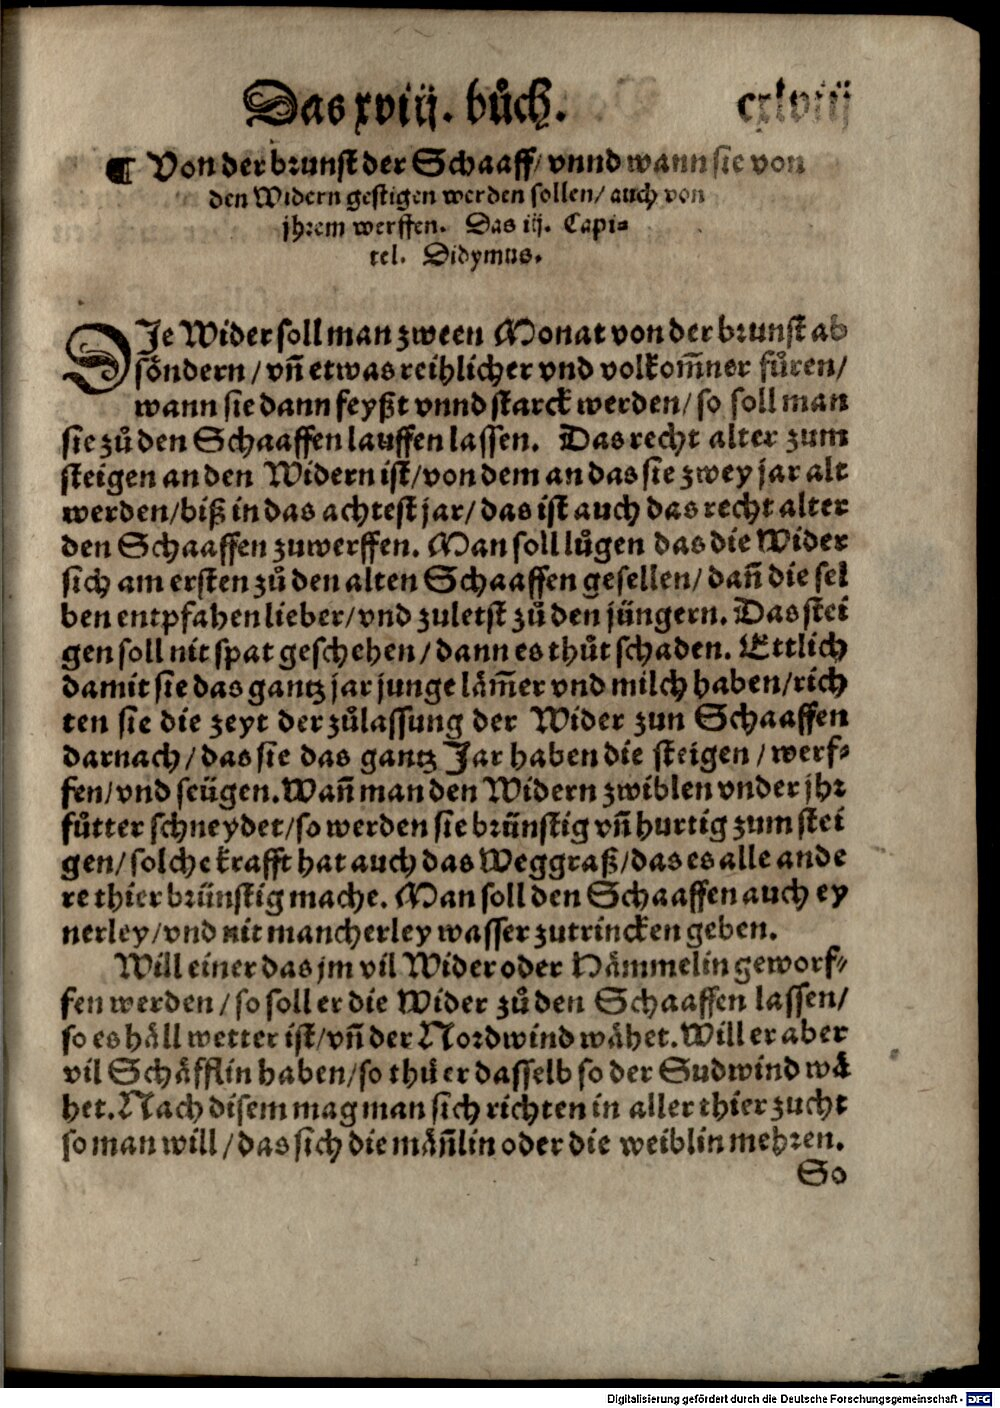 Das xviij. bůch. cxlviij
¶ Von der brunst der Schaaff/ vnnd wann sie von
den Widern gestigen werden sollen/ auch von
jhrem werffen. Das iij. Capi⸗
tel. Didymus.
DJe Wider soll man zween Monat von der brunst ab
söndern/ vn̄ etwas reihlicher vnd volkom̄ner fůren/
wann sie dann feyßt vnnd starck werden/ so soll man
sie zů den Schaaffen lauffen lassen. Das recht alter zum
steigen an den Widern ist/ von dem an das sie zwey jar alt
werden/ biß in das achtest jar/ das ist auch das recht alter
den Schaaffen zuwerffen. Man soll lůgen das die Wider
sich am ersten zů den alten Schaaffen gesellen/ dan̄ die sel
ben entpfahen lieber/ vnd zuletst zů den jüngern. Das stei
gen soll nit spat geschehen/ dann es thůt schaden. Ettlich
damit sie das gantz jar junge läm̄er vnd milch haben/ rich
ten sie die zeyt der zůlassung der Wider zun Schaaffen
darnach/ das sie das gantz Jar haben die steigen/ werf⸗
fen/ vnd seügen. Wan̄ man den Widern zwiblen vnder jhr
fůtter schneydet/ so werden sie brünstig vn̄ hurtig zum stei
gen/ solche krafft hat auch das Weggraß/ das es alle ande
re thier brünstig mache. Man soll den Schaaffen auch ey
nerley/ vnd nit mancherley wasser zutrincken geben.
Will einer das jm vil Wider oder Hämmelin geworf⸗
fen werden/ so soll er die Wider zů den Schaaffen lassen/
so es häll wetter ist/ vn̄ der Nordwind wähet. Will er aber
vil Schäfflin haben/ so thů er dasselb so der Sudwind wä
het. Nach disem mag man sich richten in aller thier zucht
so man will/ das sich die män̄lin oder die weiblin mehren.
So
Digitalisierung gefördert durch die Deutsche Forschungsgemeinschaft - DFG